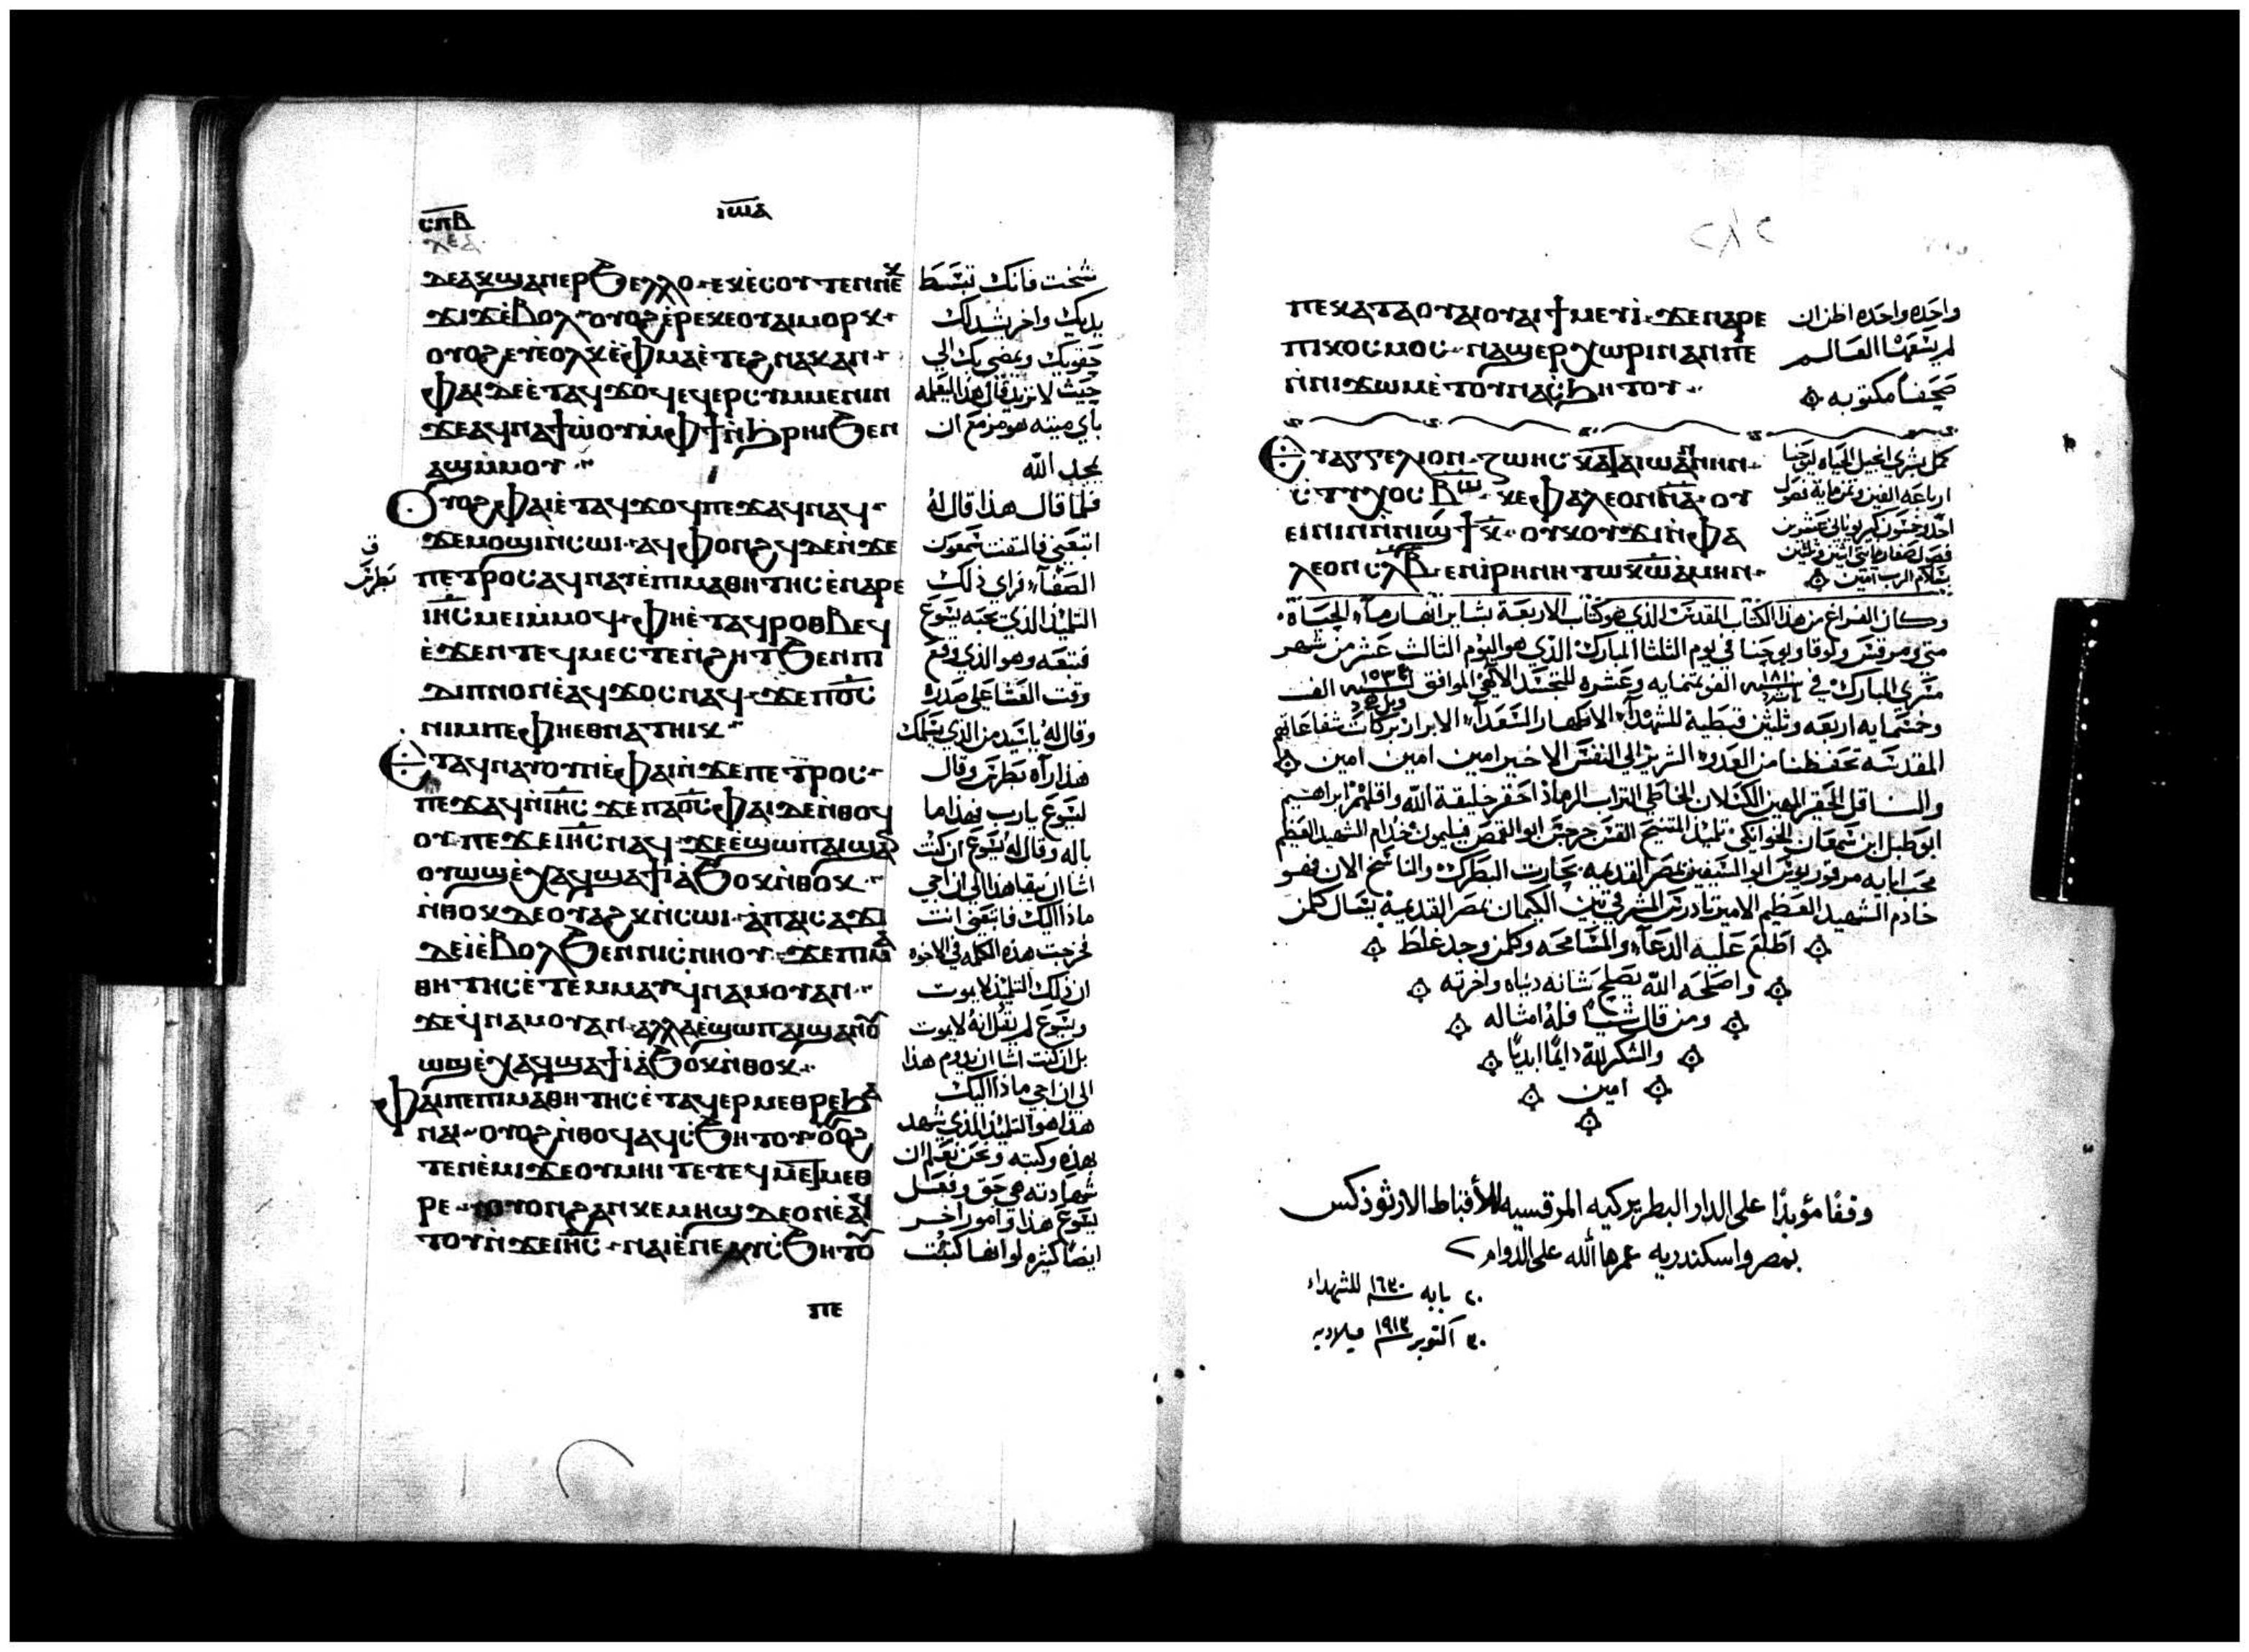 ⲥⲡⲃ
ⲓⲱⲁ
ⲇⲉⲁⲕϣⲁⲛⲉⲣϧⲉⲗⲗⲟ ⲉⲕⲉ̀ⲥⲟⲩⲧⲉⲛⲛⲉⲕ
ϫⲓϫⲉ̀ⲃⲟⲗ ⲟⲩⲟϩ ⲉ̀ⲣⲉⲕⲉⲟⲩⲁⲓⲙⲟⲣⲕ
ⲟⲩⲟϩ ⲉⲩⲉ̀ⲟⲗⲕ ⲉ̀ⲫⲙⲁ ⲉ̀ⲧⲉϩⲛⲁⲕⲁⲛ
ⲫⲁⲓⲇⲉ ⲉ̀ⲧⲁϥϫⲟϥ ⲉϥⲉⲣⲥⲩⲙⲙⲉⲛⲓⲛ
ϫⲉⲁϥⲛⲁϯⲱ̀ⲟⲩ ⲙ̀ⲫϯ ⲛ̀ϩⲣⲏⲓ ϧⲉⲛ
ⲁϣ ⲙ̀ⲙⲟⲩ
ⲟⲩⲟϩ ⲫⲁⲓ ⲉ̀ⲧⲁϥϫⲟϥ ⲡⲉϫⲁϥ ⲛⲁϥ
ϫⲉⲙⲟϣⲓ ⲛ̀ⲥⲱⲓ ⲁϥⲫⲟⲛϩϥ ⲇⲉ ⲛ̀ϫⲉ
ⲡⲉⲧⲣⲟⲥ ⲁϥⲛⲁⲩ ⲉ̀ⲡⲓⲙⲁⲑⲏⲧⲏⲥ ⲉ̀ⲛⲁⲣⲉ
ⲓⲏⲥ ⲙⲉⲓ ⲙ̀ⲙⲟϥ ⲫⲏ ⲉ̀ⲧⲁϥⲣⲟⲑⲃⲉϥ
ⲉ̀ϫⲉⲛ ⲧⲉϥⲙⲉⲥⲧⲉⲛϩⲏⲧ ϧⲉⲛ ⲡⲓ
ⲇⲓⲡⲛⲟⲛ ⲉ̀ⲁϥϫⲟⲥ ⲛⲁϥ ϫⲉ ⲡⲟⲥ
ⲛⲓⲙ ⲡⲉ ⲫⲏⲉⲑⲛⲁⲧⲏⲓⲕ
ⲉⲧⲁϥⲛⲁⲩ ⲟⲩⲛ ⲉ̀ⲫⲁⲓ ⲛ̀ϫⲉ ⲡⲉⲧⲣⲟⲥ
ⲡⲉϫⲁϥ ⲛ̀ⲓⲏⲥ ϫⲉ ⲡⲁⲟⲥ ⲫⲁⲓ ⲇⲉ ⲛ̀ⲑⲟϥ
ⲟⲩ ⲡⲉϫⲉ ⲓⲏⲥ ⲛⲁϥ ϫⲉ ⲉ̀ϣⲱⲡ ⲁⲓϣⲁⲛ
ⲟⲩⲱϣ ⲉ̀ⲭⲁϥ ϣⲁϯⲓ̀ ⲁ̀ϧⲟⲕ ⲛ̀ⲑⲟⲕ
ⲛ̀ⲑⲟⲕ ⲇⲉ ⲟⲩⲁϩⲕ ⲛ̀ⲥⲱⲓ ⲁ̀ⲡⲁⲓⲥⲁϫⲓ
ⲇⲉ ⲓ̀ ⲉ̀ⲃⲟⲗ ϧⲉⲛ ⲛⲓⲥⲛⲏⲟⲩ ϫⲉ ⲡⲓⲙⲁ
ⲑⲏⲧⲏⲥ ⲉ̀ⲧⲉⲙⲙⲁⲩ ϥ̀ⲛⲁⲙⲟⲩ ⲁⲛ
ϫⲉ ϥ̀ⲛⲁⲙⲟⲩ ⲁⲛ ⲁⲗⲗⲁ ⲉ̀ϣⲱⲡ ⲁⲓϣⲁⲛⲟⲩ
ⲱϣ ⲉ̀ⲭⲁϥ ϣⲁϯⲓ̀ ⲁ̀ϧⲟⲕ ⲛ̀ⲑⲟⲕ
ⲫⲁⲓ ⲡⲉ ⲡⲓⲙⲁⲑⲏⲧⲏⲥ ⲉ̀ⲧⲁϥⲉⲣⲙⲉⲑⲣⲉ ϧⲁ
ⲛⲁⲓ ⲟⲩⲟϩ ⲛ̀ⲑⲟϥ ⲁϥⲥϧⲏⲧⲟⲩ ⲟⲩⲟϩ
ⲧⲉⲛⲉ̀ⲙⲓ ϫⲉ ⲟⲩⲙⲏⲓ ⲧⲉ ⲧⲉϥⲙⲉⲧⲙⲉⲑ
ⲣⲉ ⲟⲩⲟⲛ ϩⲁⲛⲕⲉⲙⲏϣ ⲇⲉ ⲟⲛ ⲉ̀ⲁϥⲁⲓ
ⲧⲟⲩ ⲛ̀ϫⲉ ⲓⲏⲥ ⲛⲁⲓ ⲉ̀ⲛⲉⲁⲩⲥϧⲏⲧⲟⲩ
ⲡⲉ
شخت فانك تبسط
يديك واخر يشد لك
حقويك ويمضي بك الي
حيث لا تريد قال هذا ليعلمه
باي ميته هو مزمع ان
يمجد الله
فلما قال هذا قال له
اتبعني فالتفت شمعون
الصفا فراي ذلك
التلميذ الذي يحبه يسوع
يتبعه وهو الذي وقع
وقت العشا علي صدره
وقال له يا سيد من الذي يسلمك
هذا راه بطرس وقال
ليسوع يا رب فهذا ما
باله وقال له يسوع ان كنت
اشا ان يبقا هذا الي ان اجي
ماذا اليك فاتبعني انت
فخرجت هذه الكلمه في الاخوه
ان ذلك التلميذ لا يموت
ويسوع لم يقل انه لا يموت
بل ان كنت اشا ان يدوم هذا
الي ان اجي ماذا اليك
هذا هو التلميذ الذي شهد
بهذه وكتبه ونحن نعلم ان
شهادته هي حق وفعل
يسوع هذا وامور اخر
ايضا كثيره لو انها كتبت
بطرس
٢٨٢
ⲡⲉ ⲕⲁⲧⲁ ⲟⲩⲁⲓ ⲟⲩⲁⲓ ϯⲙⲉⲩⲓ̀ ϫⲉ ⲛⲁⲣⲉ
ⲡⲓⲕⲟⲥⲙⲟⲥ ⲛⲁϣⲉⲣⲭⲱⲣⲓⲛ ⲁⲛ ⲡⲉ
ⲛ̀ⲛⲓϫⲱⲙ ⲉ̀ⲧⲟⲩⲛⲁⲥϧⲏⲧⲟⲩ
واحده واحده اظن ان
لم يسعها العالم
صحفا مكتوبه
ⲉⲩⲁⲅⲅⲉⲗⲓⲟⲛ ⲍⲱⲏⲥ ⲕⲁⲧⲁ ⲓⲱⲁⲛⲛⲏⲛ
ⲥⲧⲩⲭⲟⲥ ⲃⲱ ⲕⲉⲫⲁⲗⲉⲟⲛ ⲛⲁ ⲟⲩ
ⲗⲉⲟⲛ ⲥⲗⲃ ⲉⲛ ⲓⲣⲏⲛⲏ ⲧⲱ ⲕⲱ ⲁⲙⲏⲛ
كمل بشري انجيل الحياه ليوحنا
بسلام الرب امين
وكان الفراغ من هذا الكتاب المقدس الذي هو كتاب الاربعة بشاير انهار ماء الحياة
متي ومرقس ولوقا ويوحنا في يوم الثلثا المبارك الذي هو اليوم الثالث عشر من شهر
مسري المبارك في سنة ١٨١٠ الف وثمنمايه وعشره للتجسد الالهي الموافق لسنة ١٥٣٤ الف
وخمسمايه اربعه وثلثين قبطية للشهداء الاطهار السعداء الابرار بركات شفاعاتهم
المقدسه تحفظنا من العدو الشرير الي النفس الاخير امين امين امين
والناقل الحقير المهين الكسلان الخاطي التراب الرماد احقر خليقة الله واقلهم ابراهيم
ابو طبل ابن سمعان الخوانكي تلميذ المتنيح القس جرجس ابو القمص فيلمون خدام الشهيد العظيم
محب ابايه مرقوريوس ابو السيفين بمصر القديمه بحارت البطرك والناسخ الان فهو
خادم الشهيد العظيم الامير تادرس المشرقي بين الكيمان بمصر القديمة يسال كلمن
اطلع عليه الدعاء والمسامحه وكلمن وجد غلط
واصلحه الله يصلح شانه دنياه واخرته
ومن قال شيا فله امثاله
والشكر لله دايما ابديا
امين
وقفا مؤبدا على الدار البطريركيه المرقسيه للأقباط الارثوذكس
بمصر واسكندريه عمرها الله على الدوام
٢٠ بابه سنة ١٦٣٠ للشهداء
٣٠ اكتوبر سنة ١٩١٣ ميلاديه